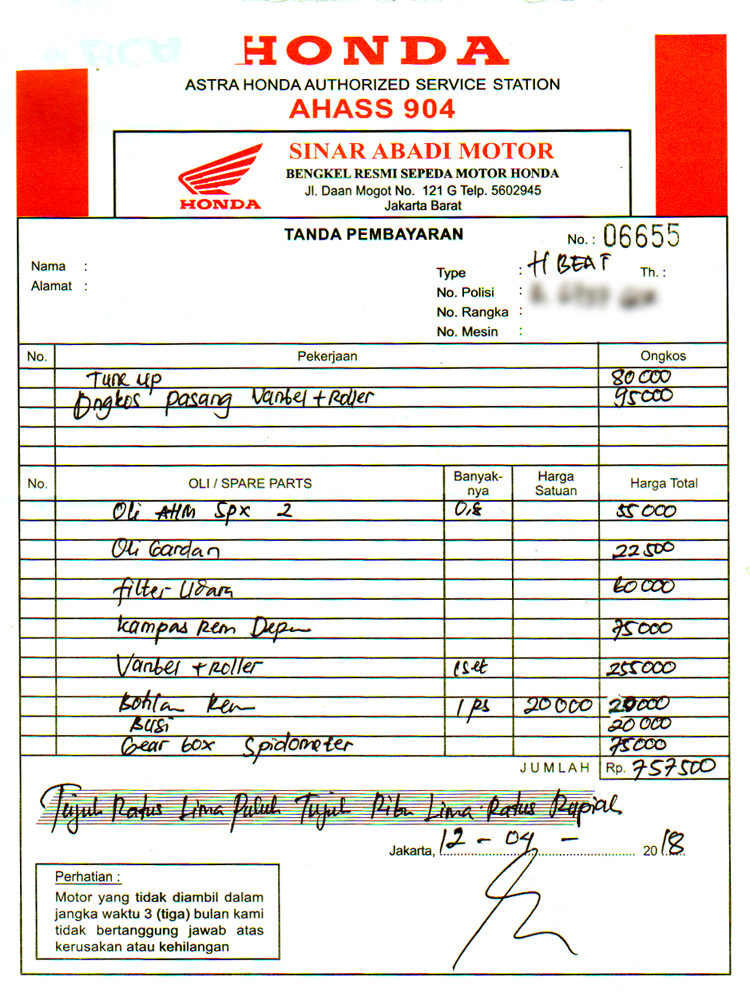 HONDA
ASTRA HONDA AUTHORIZED SERVICE STATION
AHASS 904
HONDA
SINAR ABADI MOTOR
BENGKEL RESMI SEPEDA MOTOR HONDA
Jl. Daan Mogot No. 121 G Telp. 5602945
Jakarta Barat
TANDA PEMBAYARAN
No. : 06655
Nama :
Alamat :
Type : H BEAT Th. :
No. Polisi :
No. Rangka :
No. Mesin :
No. Pekerjaan Ongkos
Tune up 80000
Ongkos pasang Vanbel + Roller 95000
No. OLI / SPARE PARTS Banyak-nya Harga Satuan Harga Total
Oli AHM Spx 2 0,8 55000
Oli Gardan 22500
filter Udara 60000
kampas Rem Depan 75000
Vanbel + Roller 1 set 255000
Bohlam Rem 1 ps 20000 20000
Busi 20000
Gear box Spidometer 75000
JUMLAH Rp. 757500
Tujuh Ratus Lima Puluh Tujuh Ribu Lima Ratus Rupiah
Jakarta, 12 - 04 - 2018
Perhatian :
Motor yang tidak diambil dalam
jangka waktu 3 (tiga) bulan kami
tidak bertanggung jawab atas
kerusakan atau kehilangan